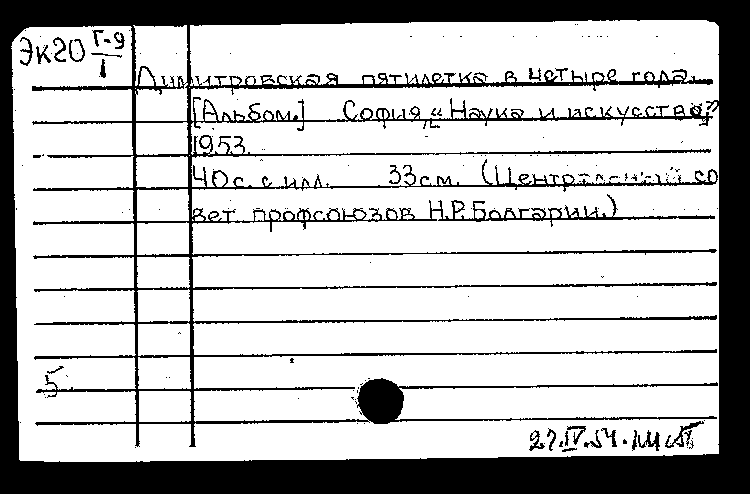 Эк20 Г-9
1
Димитровская пятилетка в четыре года.
[Альбом.] София, „Наука и искусство“,
1953.
40 с. с илл. 33 см. (Центральный со
вет профсоюзов Н.Р. Болгарии.)
5
27.IV.54.